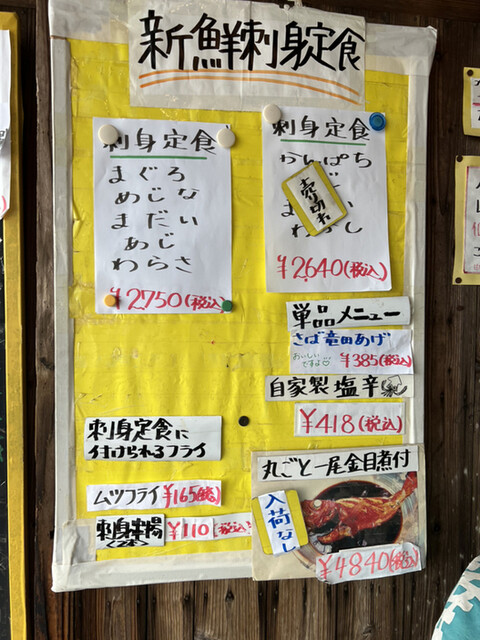 新鮮刺身定食
刺身定食
まぐろ
めじな
まだい
あじ
わらさ
¥2750(税込)
刺身定食
かんぱち
売り切れ
¥2640(税込)
単品メニュー
さば竜田あげ
おいしい
ですよ♡
¥385(税込)
自家製塩辛
¥418(税込)
刺身定食に
付けられるフライ
ムツフライ ¥165(税込)
刺身串揚
¥110(税込)
丸ごと一尾金目煮付
入荷なし
¥4840(税込)